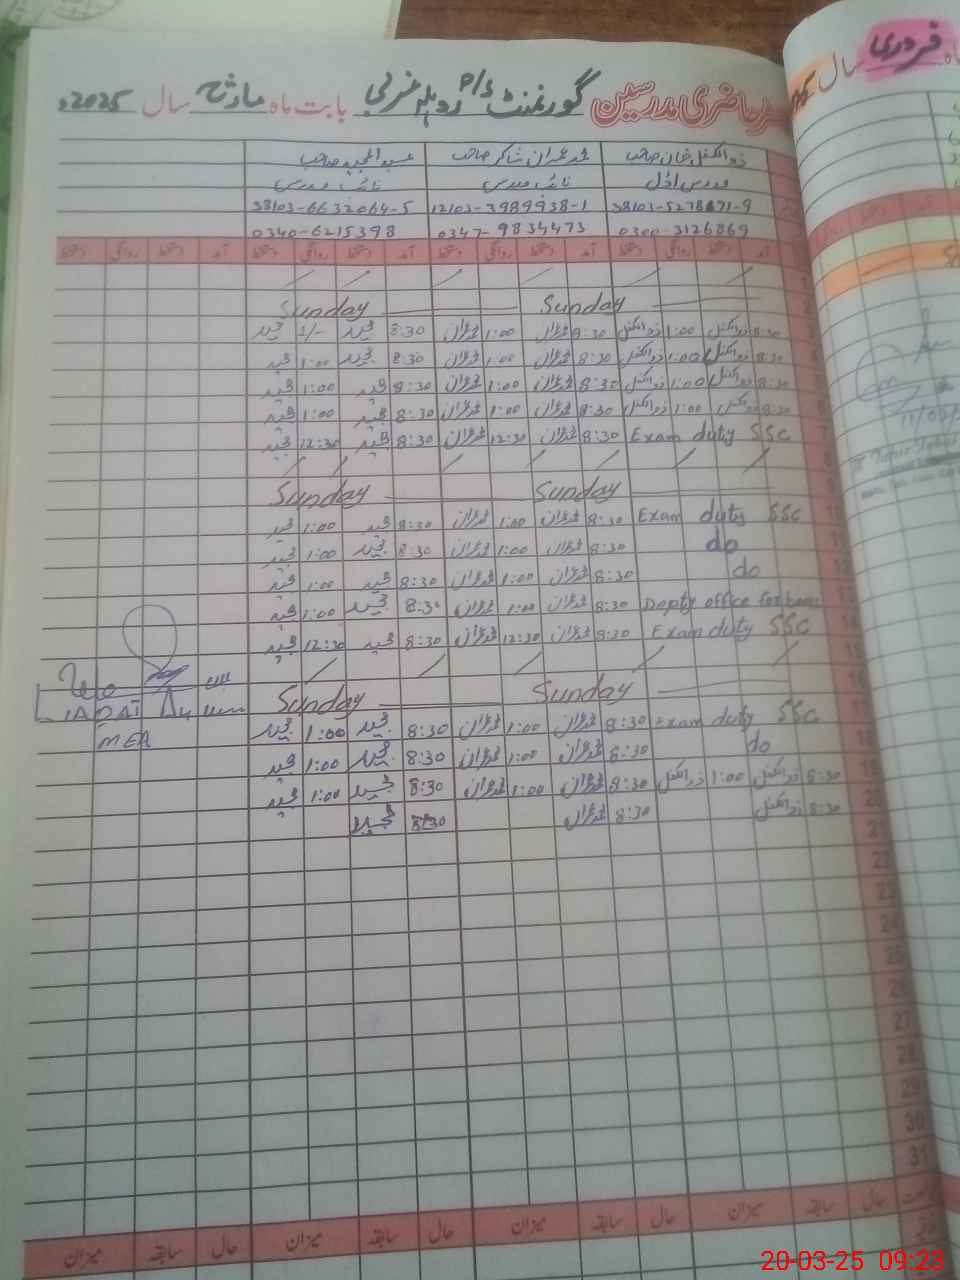 رجسٹر حاضری مدرسین گورنمنٹ بابت ماہ مارچ سال 2025ء
ماہ فروری سال
ذوالکفل خان صاحب محمد عمران شاکر صاحب عبدالمجید صاحب
مدرس اول نائب مدرس نائب مدرس
38103-5278671-9 12103-3989938-1 38103-6632064-5
0300-3126869 0347-9834473 0340-6215398
آمد دستخط روانگی دستخط آمد دستخط روانگی دستخط آمد دستخط روانگی دستخط آمد دستخط روانگی دستخط
1
2 Sunday Sunday
8:30 ذوالکفل 1:00 ذوالکفل 8:30 عمران 1:00 عمران 8:30 مجید 1/- مجید
8:30 ذوالکفل 1:00 ذوالکفل 8:30 عمران 1:00 عمران 8:30 مجید 1:00 مجید
8:30 ذوالکفل 1:00 ذوالکفل 8:30 عمران 1:00 عمران 8:30 مجید 1:00 مجید
6 8:30 ذوالکفل 1:00 ذوالکفل 8:30 عمران 1:00 عمران 8:30 مجید 1:00 مجید
7 Exam duty SSC 8:30 عمران 12:30 عمران 8:30 مجید 12:30 مجید
8
9 Sunday Sunday
10 Exam duty SSC 8:30 عمران 1:00 عمران 8:30 مجید 1:00 مجید
11 do 8:30 عمران 1:00 عمران 8:30 مجید 1:00 مجید
12 do 8:30 عمران 1:00 عمران 8:30 مجید 1:00 مجید
13 Depty office for 8:30 عمران 1:00 عمران 8:30 مجید 1:00 مجید
14 Exam duty SSC 8:30 عمران 12:30 عمران 8:30 مجید 12:30 مجید
15
16 Sunday Sunday
17 Exam duty SSC 8:30 عمران 1:00 عمران 8:30 مجید 1:00 مجید
LIAQAT
MEA
18 do 8:30 عمران 1:00 عمران 8:30 مجید 1:00 مجید
19 8:30 ذوالکفل 1:00 ذوالکفل 8:30 عمران 1:00 عمران 8:30 مجید 1:00 مجید
20 8:30 ذوالکفل 8:30 عمران 8:30 مجید
21
22
23
24
25
26
27
28
29
30
31
حال سابقہ میزان حال سابقہ میزان حال سابقہ میزان حال سابقہ میزان
20-03-25 09:23